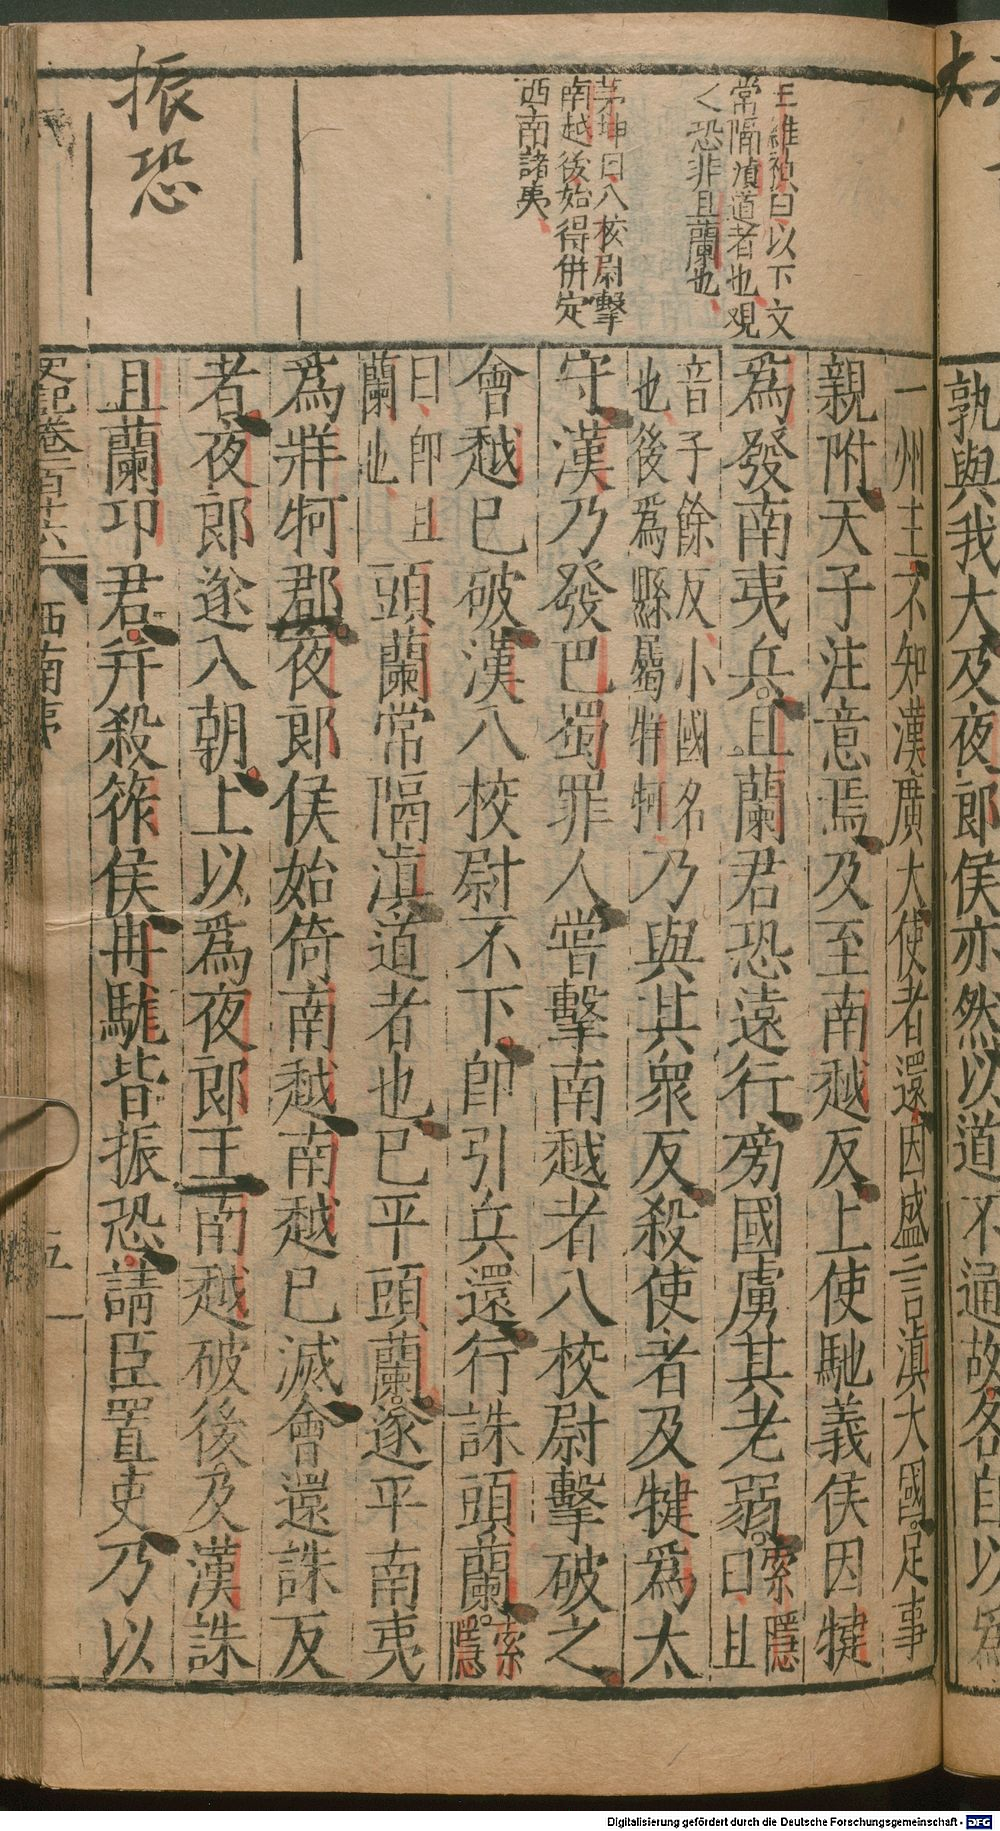 孰與我大及夜郎侯亦然以道不通故各自以爲
王維禎曰以下文
常隔滇道者也觀
之恐非且蘭也
茅坤曰八校尉擊
南越後始得併定
西南諸夷
振恐
一州主不知漢廣大使者還因盛言滇大國足事
親附天子注意焉及至南越反上使馳義侯因犍
爲發南夷兵且蘭君恐遠行旁國虜其老弱索隱曰且
音子餘反小國名也後爲縣屬牂牁乃與其衆反殺使者及犍爲太
守漢乃發巴蜀罪人嘗擊南越者八校尉擊破之
會越已破漢八校尉不下卽引兵還行誅頭蘭索隱
曰卽且蘭也頭蘭常隔滇道者也已平頭蘭遂平南夷
爲牂牁郡夜郎侯始倚南越南越已滅會還誅反
者夜郎遂入朝上以爲夜郎王南越破後及漢誅
且蘭卭君幷殺筰侯冉駹皆振恐請臣置吏乃以
史記卷一百十六 西南夷 五
Digitalisierung gefördert durch die Deutsche Forschungsgemeinschaft - DFG